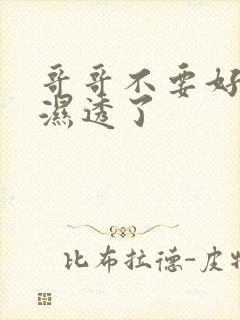 哥哥不要好
濕透了
比布拉德-皮